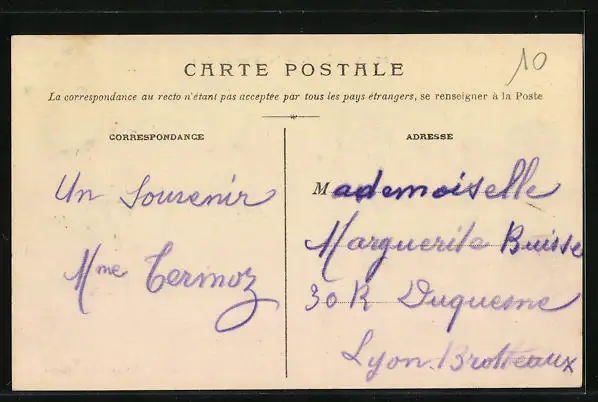 10
CARTE POSTALE
La correspondance au recto n'étant pas acceptée par tous les pays étrangers, se renseigner à la Poste
CORRESPONDANCE
Un Souvenir
Mme Termoz
ADRESSE
Mademoiselle
Marguerite Buisse
30 R Duquesne
Lyon Brotteaux